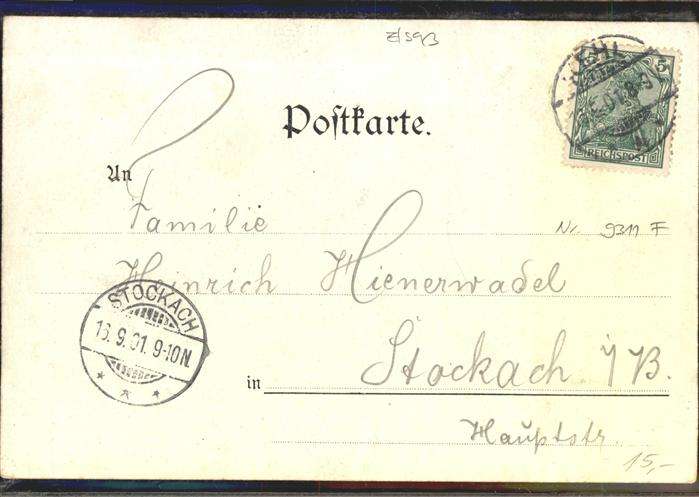 Z/593
Postkarte.
5
REICHSPOST
An
Familie
Nr. 9311 F
Heinrich Hienerwadel
STOCKACH
13.9.01. 9-10N.
in Stockach i/B.
Hauptstr.
15,-